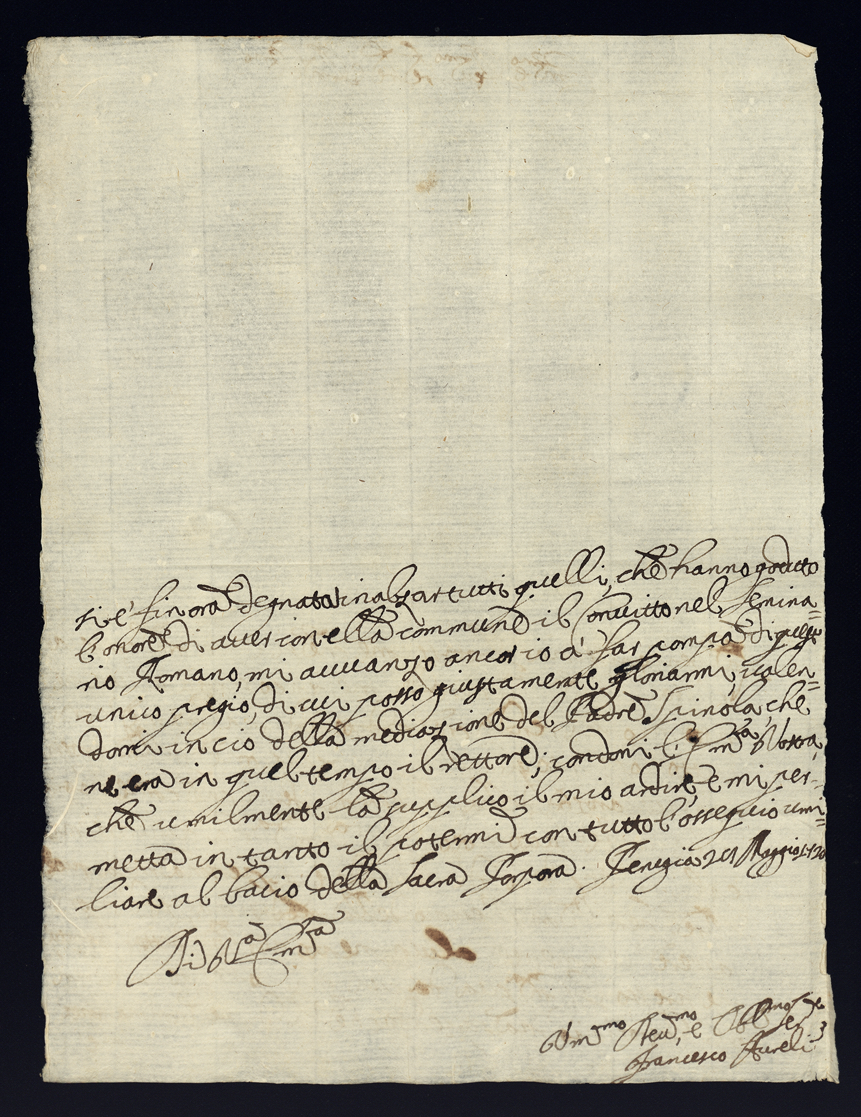 si è sin ora degnata inalzar tutti quelli, che hanno goduto
l'onore di aver con ella commune il Convitto nel Semina=
rio Romano, mi avvanzo ancor io à far pompa di quest'
unico pregio, di cui posso giustamente gloriarmi, valen=
domi in ciò della mediazione del Padre Spinola, che
ne era in quel tempo il rettore; condoni l'Em.za Vostra,
che umilmente la supplico il mio ardire, e mi per=
metta in tanto il potermi con tutto l'ossequio umi=
liare al bacio della Sacra Porpora. Venezia 24 Maggio 1730
Di V.ra Em.za
Um.mo Dev.mo, e Obl.mo Se
Francesco Aureli